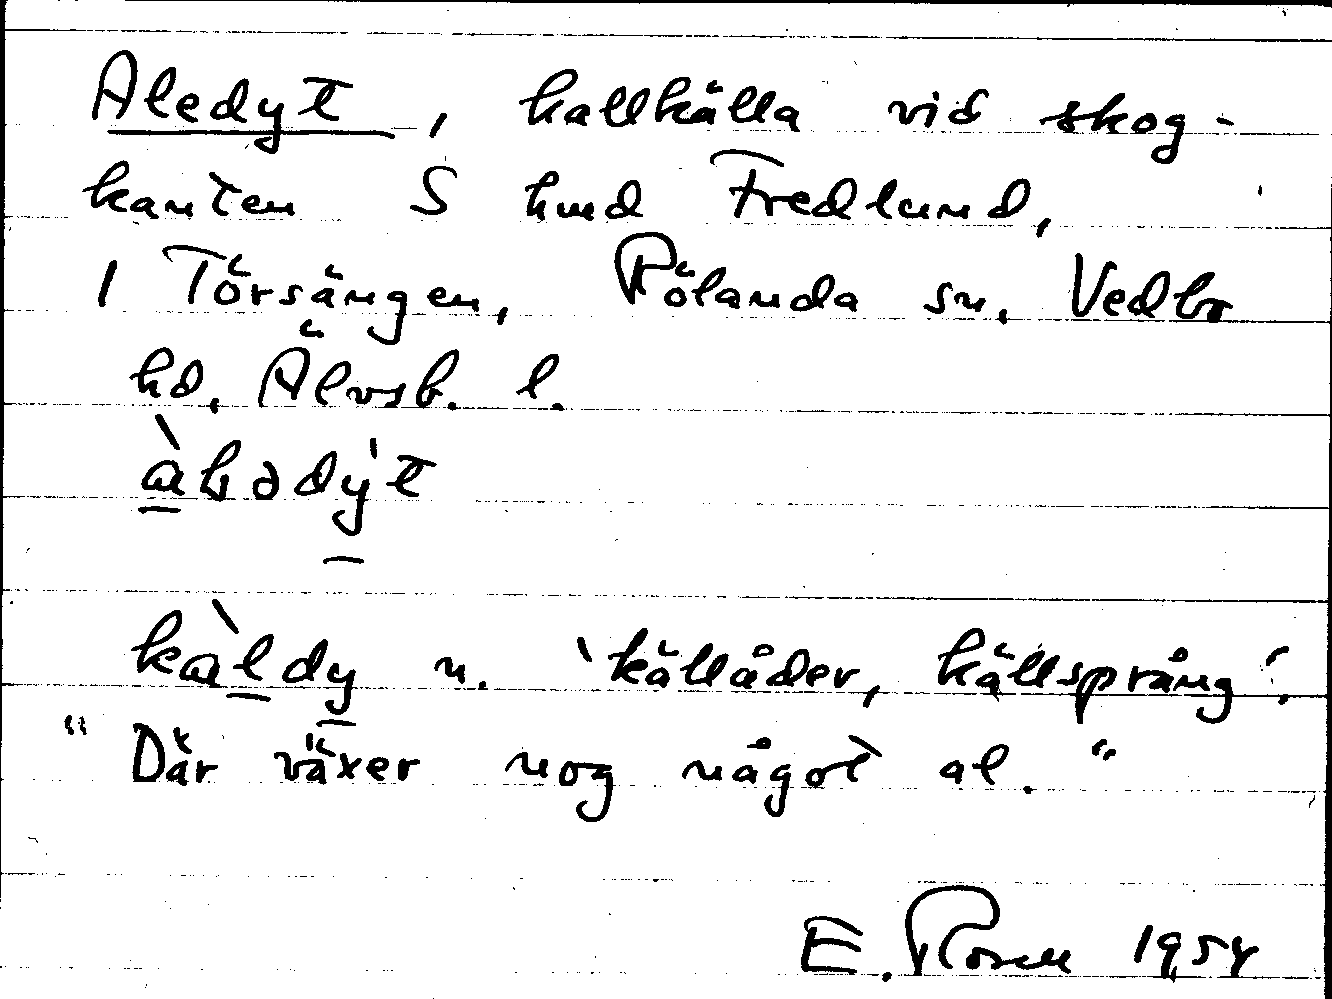 Aledyt, kallkälla vid skog-
kanten S hmd Fredlund,
i Törsängen, Rölanda sn, Vedbo
hd, Älvsb. l.
àlɘdýt
kàldy n. 'källåder, källsprång'.
"Där växer nog något al."
E. Rosell 1954